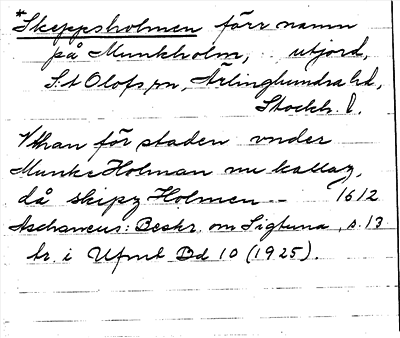 *Skeppsholmen förr namn
på Munkholm, utjord,
S:t Olofs sn, Ärlinghundra hd,
Stockh. l.
Vthan för staden vnder
Munke Holman nu kallaz,
då skipz Holmen -- 1612
Aschaneus: Beskr. om Sigtuna, s. 13
tr. i Ufmt Bd 10 (1925).